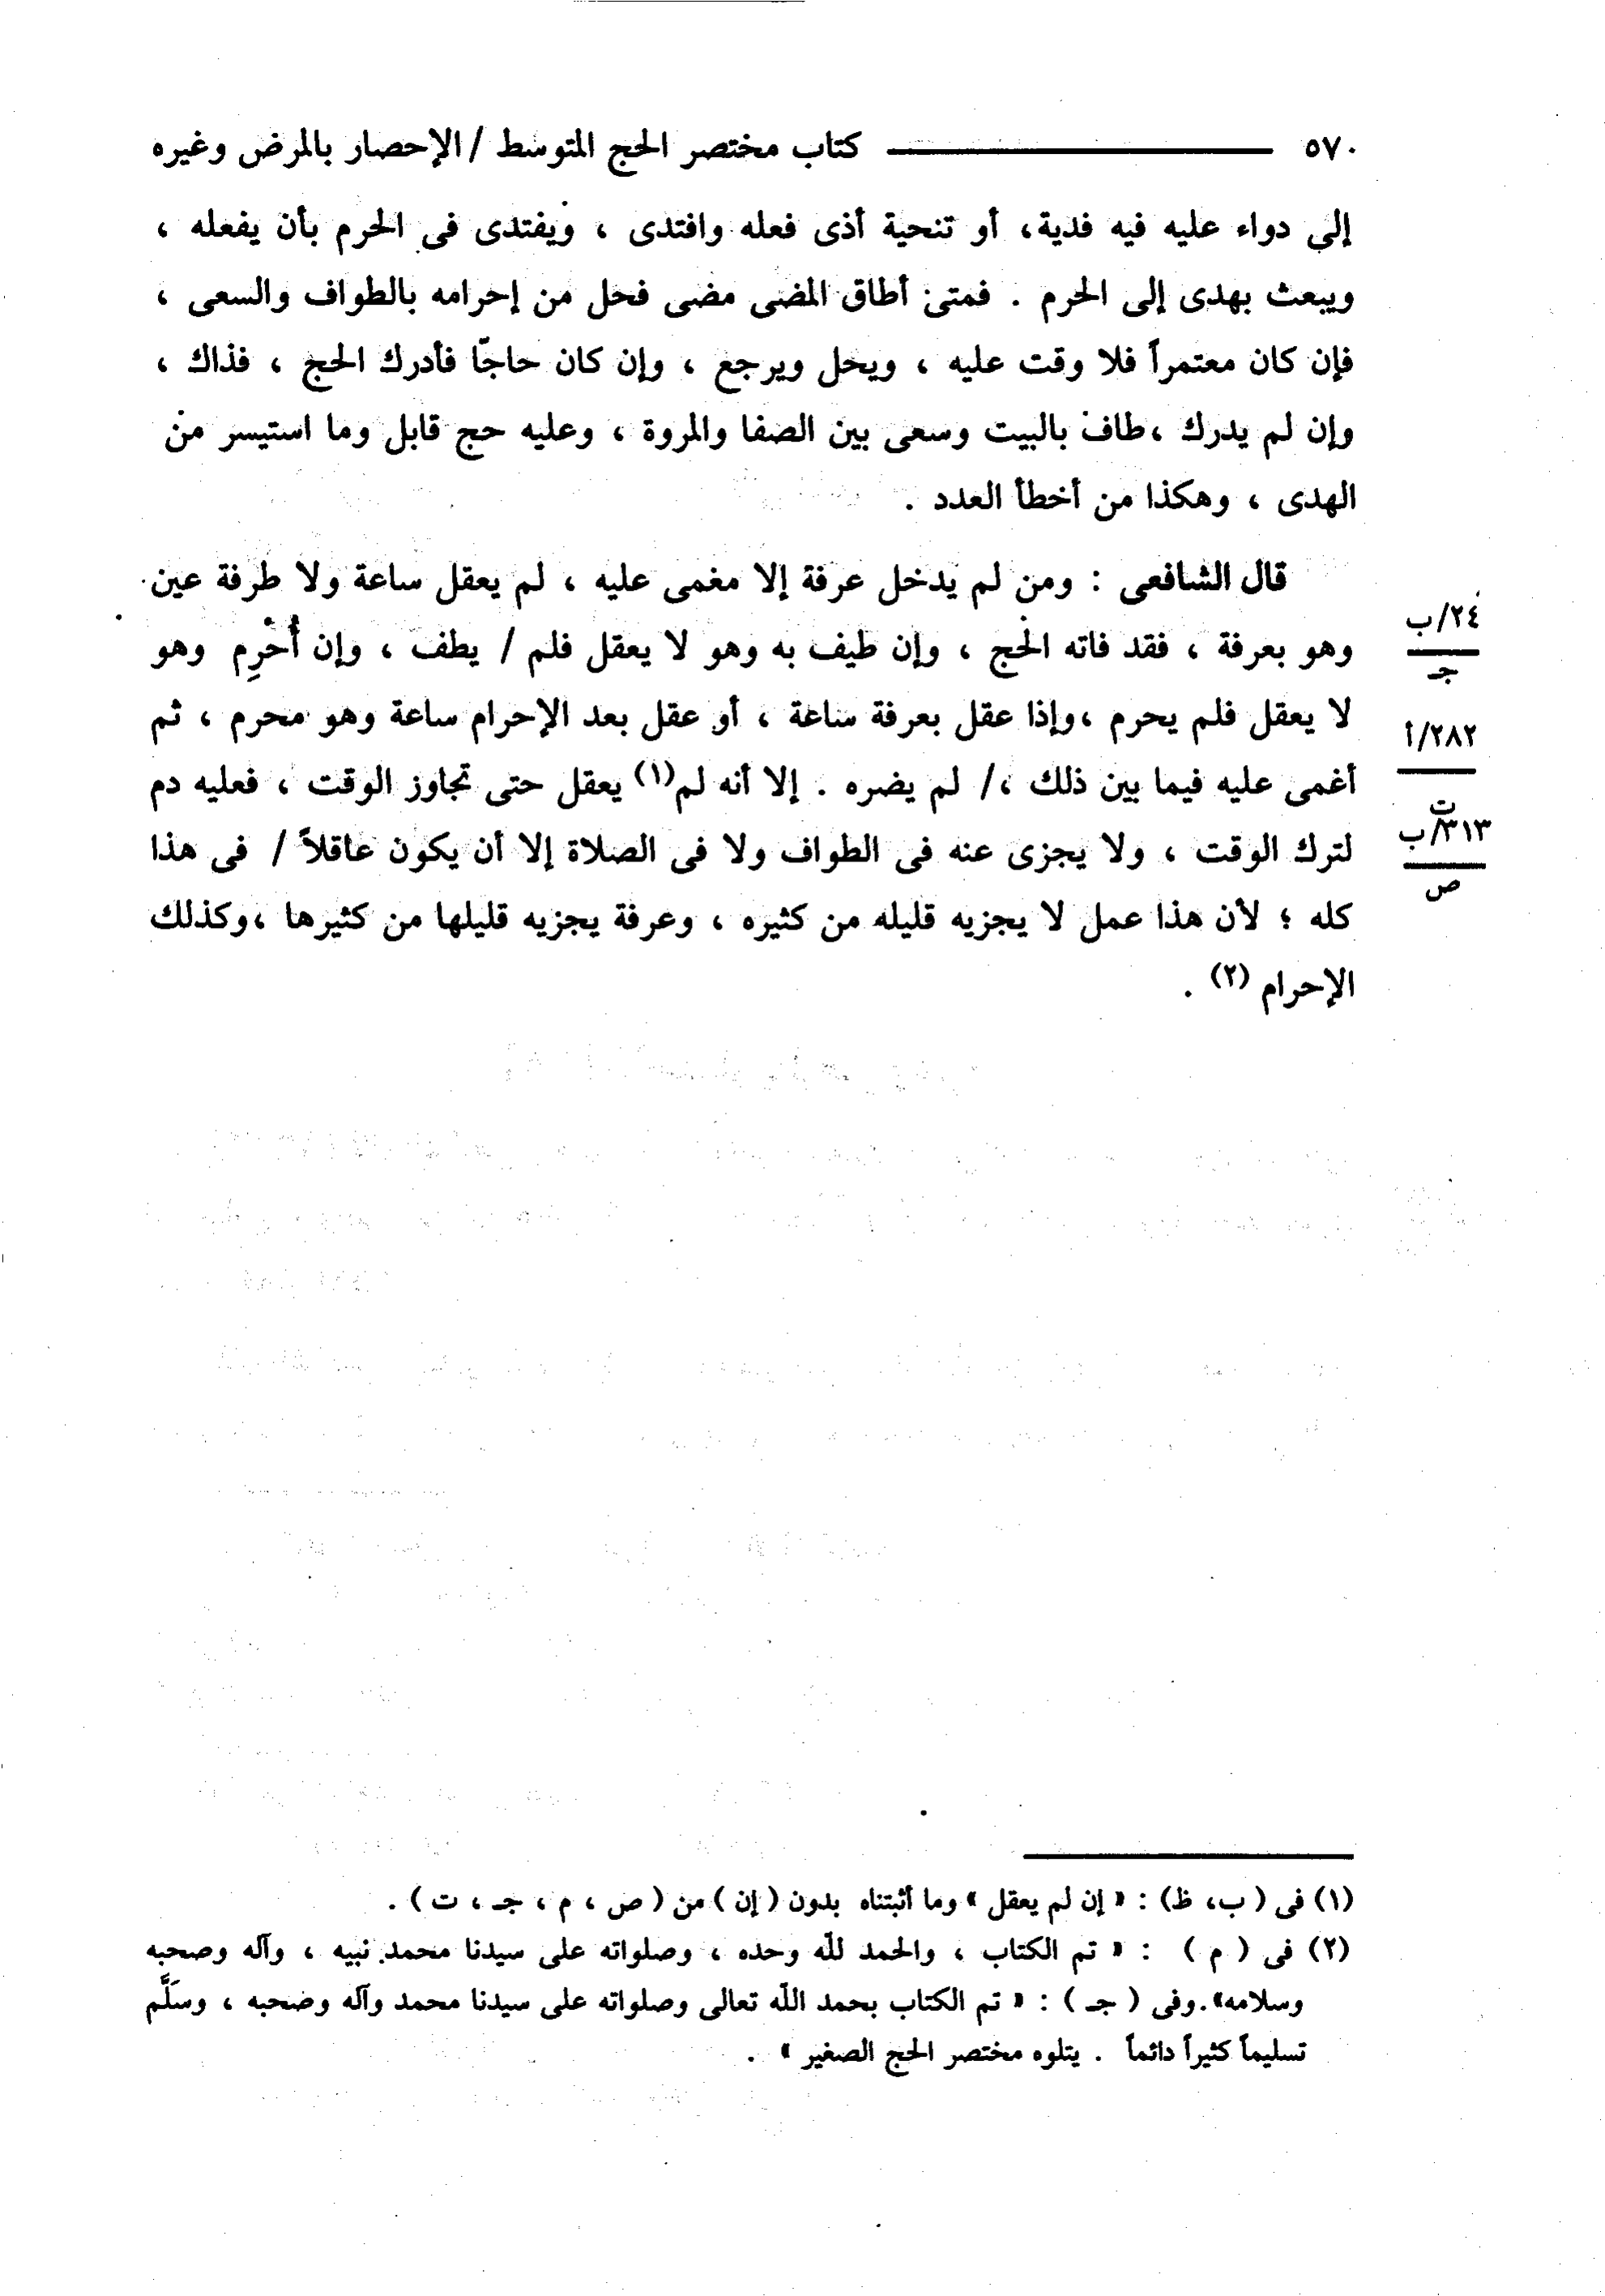 ٥٧٠ كتاب مختصر الحج المتوسط / الإحصار بالمرض وغيره
إلى دواء عليه فيه فدية، أو تنحية أذى فعله وافتدى ، ويفتدى فى الحرم بأن يفعله ،
ويبعث بهدى إلى الحرم . فمتى أطاق المضى مضى فحل من إحرامه بالطواف والسعى ،
فإن كان معتمراً فلا وقت عليه ، ويحل ويرجع ، وإن كان حاجّا فأدرك الحج ، فذاك ،
وإن لم يدرك ،طاف بالبيت وسعى بين الصفا والمروة ، وعليه حج قابل وما استيسر من
الهدى ، وهكذا من أخطأ العدد .
قال الشافعى : ومن لم يدخل عرفة إلا مغمى عليه ، لم يعقل ساعة ولا طرفة عين
وهو بعرفة ، فقد فاته الحج ، وإن طيف به وهو لا يعقل فلم / يطف ، وإن أُحْرِم وهو
لا يعقل فلم يحرم ،وإذا عقل بعرفة ساعة ، أو عقل بعد الإحرام ساعة وهو محرم ، ثم
أغمى عليه فيما بين ذلك ،/ لم يضره . إلا أنه لم(١) يعقل حتى تجاوز الوقت ، فعليه دم
لترك الوقت ، ولا يجزى عنه فى الطواف ولا فى الصلاة إلا أن يكون عاقلاً / فى هذا
كله ؛ لأن هذا عمل لا يجزيه قليله من كثيره ، وعرفة يجزيه قليلها من كثيرها ،وكذلك
الإحرام (٢) .
٢٤/ب
جـ
٢٨٢/أ
ت
٣١٣/ب
ص
(١) فى ( ب، ظ) : « إن لم يعقل » وما أثبتناه بدون ( إن ) من ( ص ، م ، جـ ، ت ) .
(٢) فى ( م ) : « تم الكتاب ، والحمد لله وحده ، وصلواته على سيدنا محمد نبيه ، وآله وصحبه
وسلامه».وفى ( جـ ) : « تم الكتاب بحمد الله تعالى وصلواته على سيدنا محمد وآله وصحبه ، وسَلَّم
تسليماً كثيراً دائماً . يتلوه مختصر الحج الصغير » .